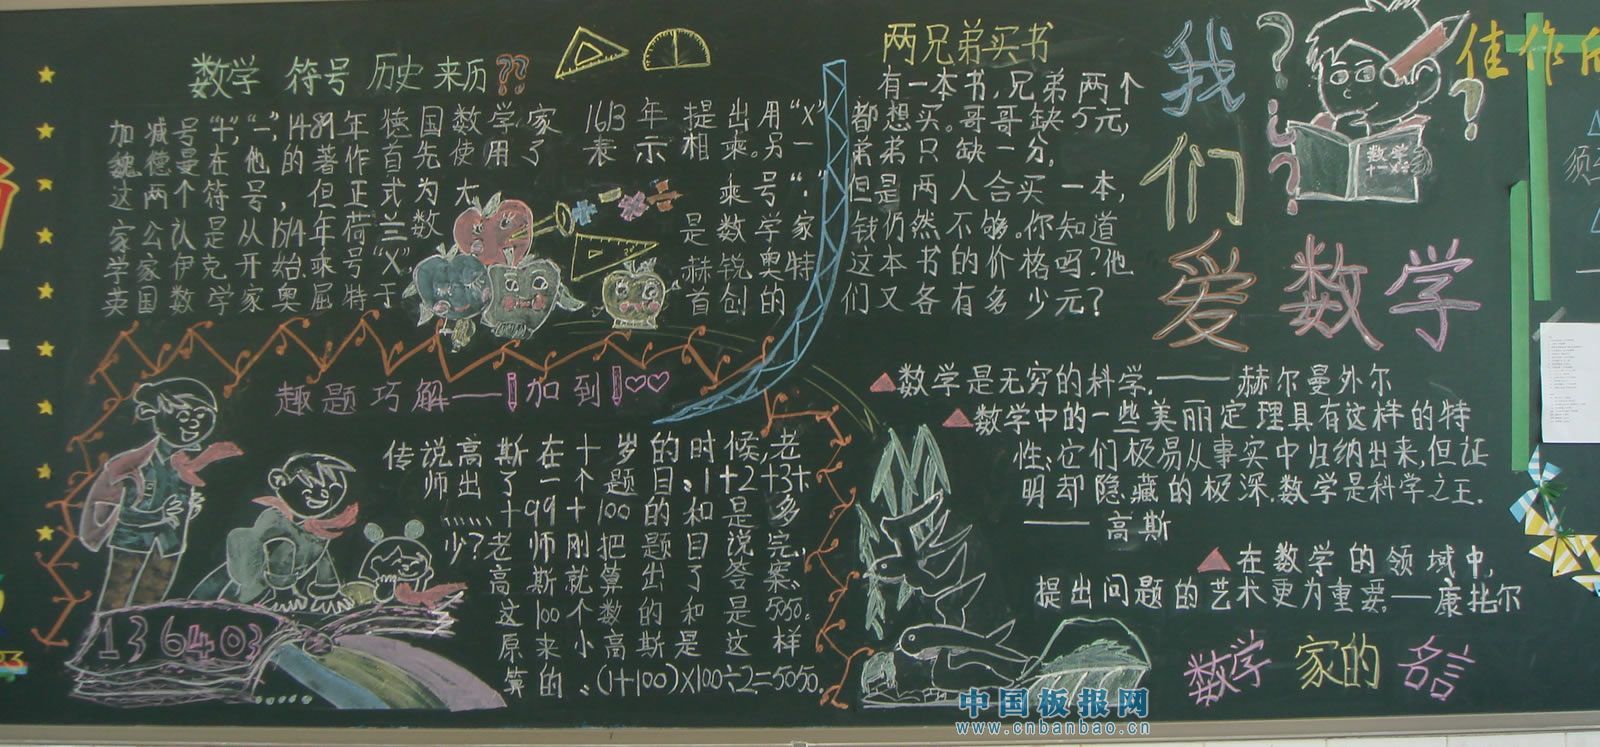 数学 符号 历史 来历??
加减号"十","一",1489年德国数学家
魏德曼在他的著作首先使用了
这两个符号,但正式为大
家公认是从1514年荷兰数
学家伊克开始.乘号"X",
英国数学家奥屈特于
1613年提出用"X"
表示相乘。另一
乘号"·"
是数学家
赫锐奥特
首创的
两兄弟买书
有一本书,兄弟两个
都想买。哥哥缺5元,
弟弟只缺一分.
但是两人合买一本,
钱仍然不够.你知道
这本书的价格吗?他
们又各有多少元?
我们爱数学
佳作
趣题巧解——1加到100
传说高斯在十岁的时候,老
师出了个题目:1+2+3+
……+99+100的和是多
少?老师刚把题目说完,
高斯就算出了答案:
这100个数的和是5050.
原来小高斯是这样
算的:(1+100)X100÷2=5050.
136403
数学
+-×÷
数学是无穷的科学.——赫尔曼外尔
数学中的一些美丽定理具有这样的特
性:它们极易从事实中归纳出来,但证
明却隐藏的极深.数学是科学之王.
——高斯
在数学的领域中,
提出问题的艺术更为重要.——康扥尔
数学家的名言
中国板报网
www.cnbanbao.cn